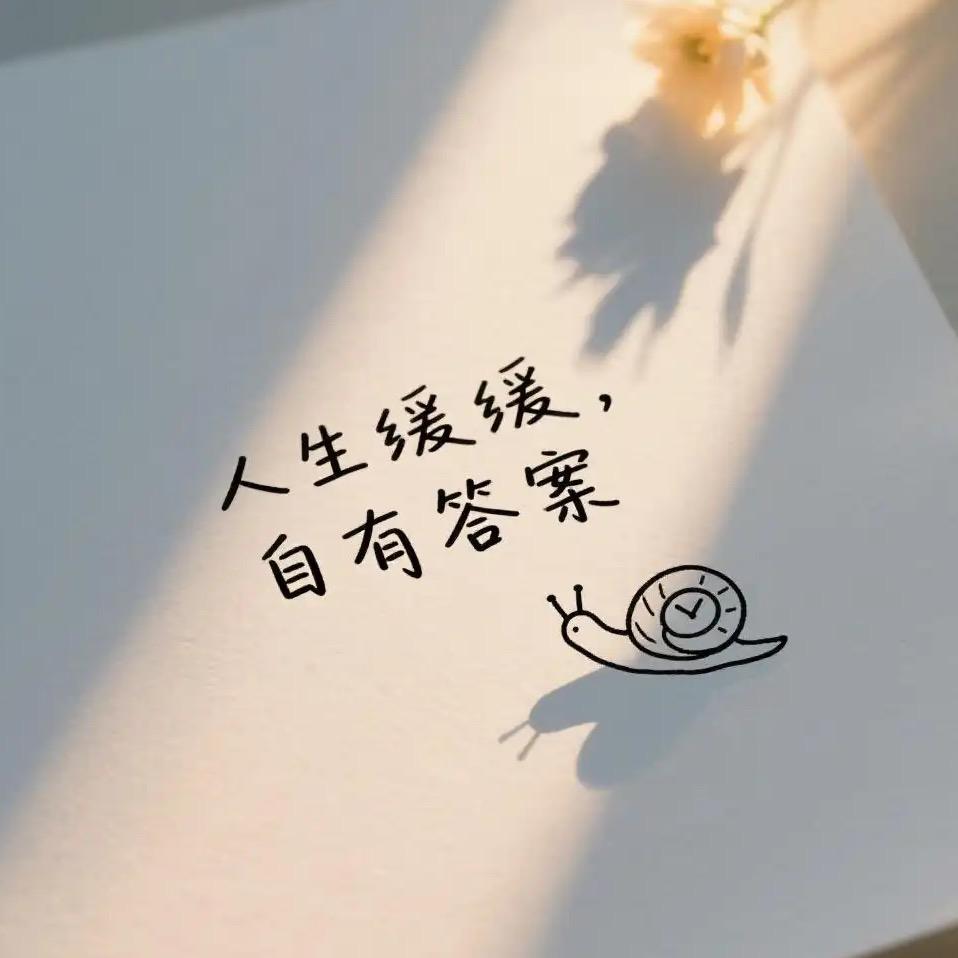 人生缓缓，
自有答案